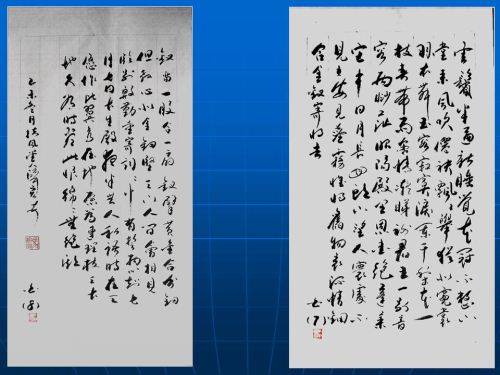 雲鬢半偏新睡覺花冠不整下
堂来風吹仙袂飄飄舉猶似霓裳
羽衣舞玉容寂寞淚闌干梨花一
枝春帶雨含情凝睇謝君王一别音
容两渺茫昭陽殿里恩愛绝蓬莱
宫中日月長回頭下望人寰處不
見長安見塵霧惟將舊物表深情鈿
合金釵寄將去
釵留一股合一扇釵擘黄金合分鈿
但教心似金鈿堅天上人间會相見
臨别殷勤重寄詞詞中有誓两心知七
月七日長生殿夜半無人私語時在天
願作比翼鳥在地願為連理枝天長
地久有時盡此恨綿綿無绝期